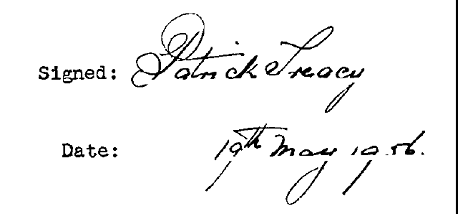 Signed: Patrick Treacy
Date: 19th May 1956.